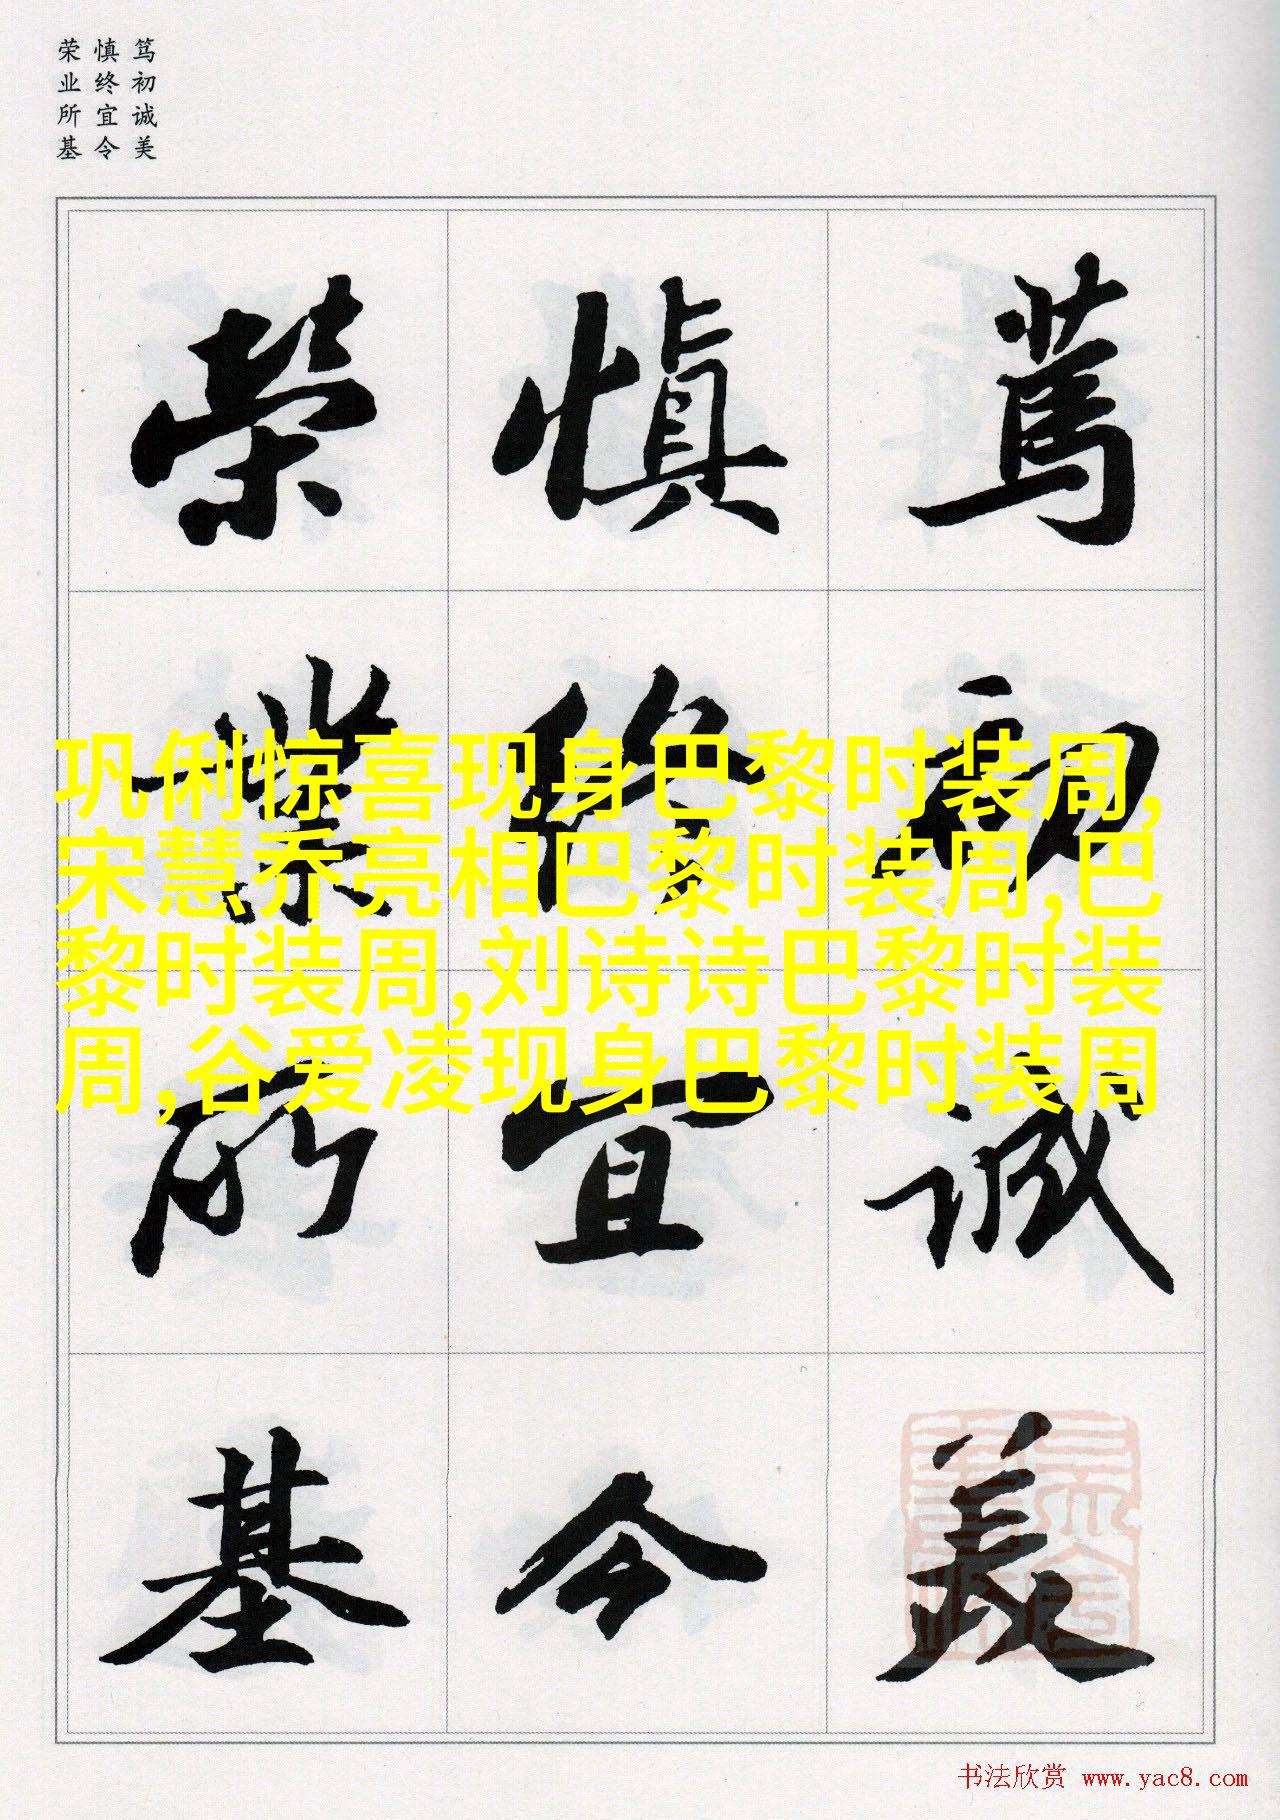 笃初诚美
慎终宜令
荣业所基
篤初誠美
慎終宜令
榮業所基
巩俐惊喜现身巴黎时装周,
宋慧乔亮相巴黎时装周,巴
黎时装周,刘诗诗巴黎时装
周,谷爱凌现身巴黎时装周
书法欣赏 www.yac8.com